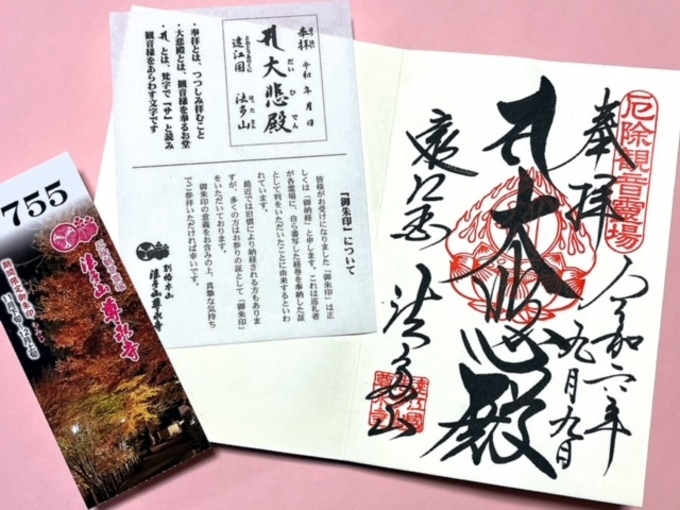 厄除観音霊場
奉拝
令和六年
九月九日
大悲殿
遠江国
法多山
奉拝 令和 年 月 日
大悲殿
だいひでん
遠江国 法多山
とおとうみのくに
・奉拝とは、つつしみ拝むこと
・大悲殿とは、観音様を奉るお堂
とは、梵字で『サ』と読み
観音様をあらわす文字です
『御朱印』について
皆様がお受けになりました『御朱印』は正
しくは『御納経』と申します。これは巡礼者
が各霊場に、自ら書写した経巻を奉納した証
として判をいただいたことに由来するといわ
れています。
最近では旧慣により納経される方もありま
すが、多くの方はお参りの証として『御朱印』
をいただいております。
御朱印の意義をお含みの上、真摯な気持ち
でご参拝いただければ幸いです。
別格本山
法多山尊永寺
755
法多山尊永寺